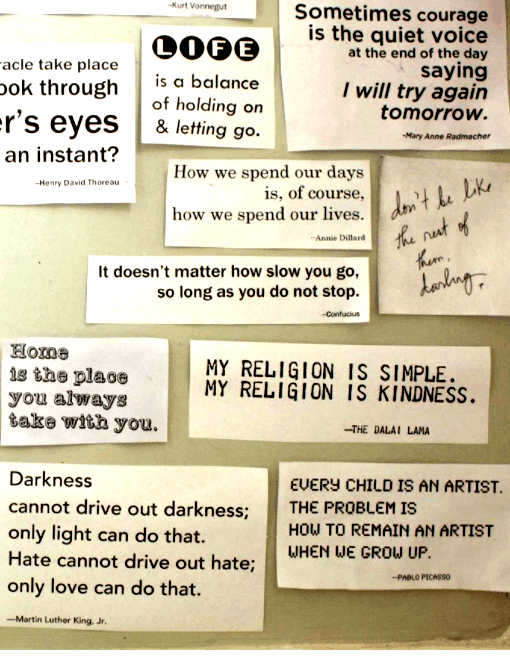 -Kurt Vonnegut
LIFE
is a balance
of holding on
& letting go.
Sometimes courage
is the quiet voice
at the end of the day
saying
I will try again
tomorrow.
-Mary Anne Radmacher
take place
through
eyes
an instant?
-Henry David Thoreau
How we spend our days
is, of course,
how we spend our lives.
--Annie Dillard
don't be like
the rest of
them,
darling.
It doesn't matter how slow you go,
so long as you do not stop.
-Confucius
Home
is the place
you always
take with you.
MY RELIGION IS SIMPLE.
MY RELIGION IS KINDNESS.
--THE DALAI LAMA
Darkness
cannot drive out darkness;
only light can do that.
Hate cannot drive out hate;
only love can do that.
—Martin Luther King, Jr.
EVERY CHILD IS AN ARTIST.
THE PROBLEM IS
HOW TO REMAIN AN ARTIST
WHEN WE GROW UP.
--PABLO PICASSO